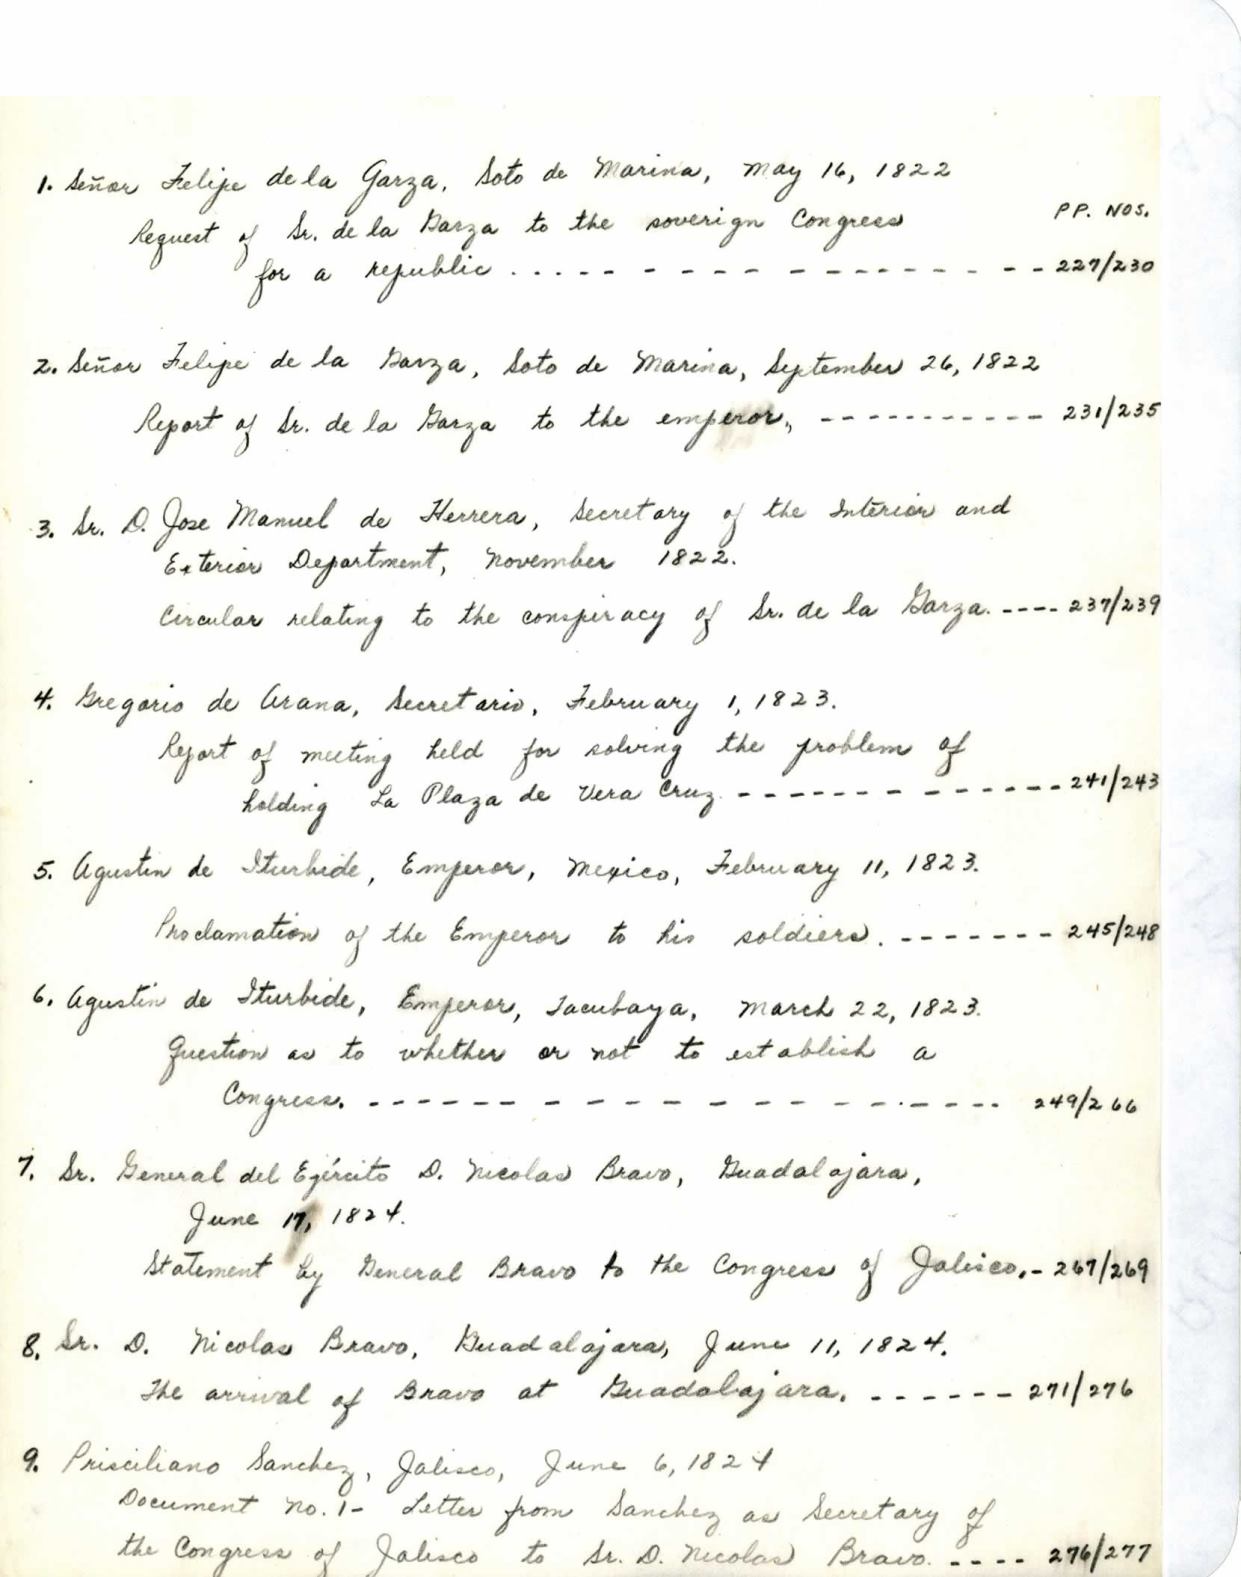 1. Señor Felipe de la Garza, Soto de Marina, May 16, 1822
PP. NOS.
Request of Sr. de la Garza to the soverign Congress
for a republic . . . . - - - - - - - - - - - - - - 227/230
2. Señor Felipe de la Garza, Soto de Marina, September 26, 1822
Report of Sr. de la Garza to the emperor., - - - - - - - - - - - 231/235
3. Sr. D. Jose Manuel de Herrera, Secretary of the Interior and
Exterior Department, November 1822.
Circular relating to the conspiracy of Sr. de la Garza. - - - - 237/239
4. Gregorio de Arana, Secretario, February 1, 1823.
Report of meeting held for solving the problem of
holding La Plaza de Vera Cruz. - - - - - - - - - - - - - 241/243
5. Agustin de Iturbide, Emperor, Mexico, February 11, 1823.
Proclamation of the Emperor to his soldiers. - - - - - - - 245/248
6. Agustin de Iturbide, Emperor, Tacubaya, March 22, 1823.
Question as to whether or not to establish a
Congress. - - - - - - - - - - - - - - - - - - - - 249/266
7. Sr. General del Ejército D. Nicolas Bravo, Guadalajara,
June 17, 1824.
Statement by General Bravo to the Congress of Jalisco. - 267/269
8. Sr. D. Nicolas Bravo, Guadalajara, June 11, 1824.
The arrival of Bravo at Guadalajara. - - - - - - 271/276
9. Prisciliano Sanchez, Jalisco, June 6, 1824
Document No. 1 - Letter from Sanchez as Secretary of
the Congress of Jalisco to Sr. D. Nicolas Bravo. - - - - 276/277